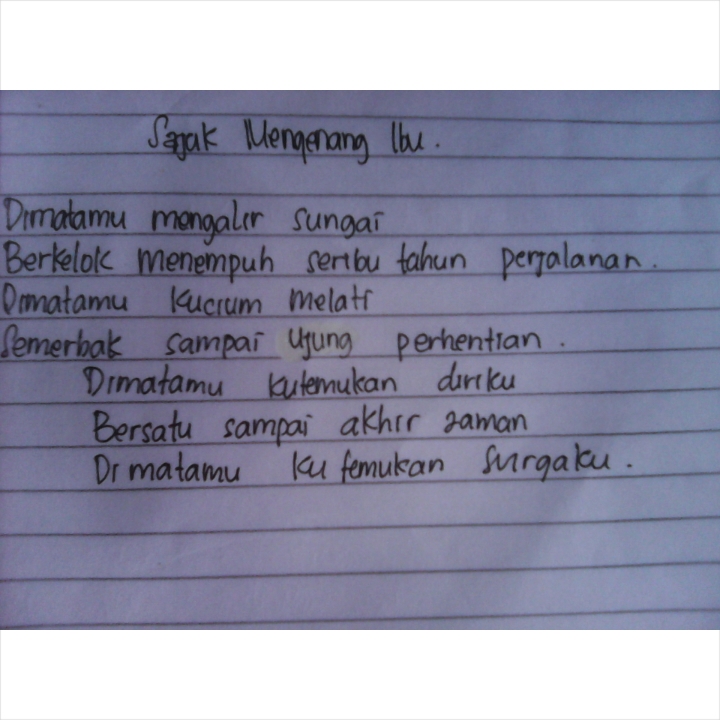 Sajak Mengenang Ibu.
Dimatamu mengalir sungai
Berkelok menempuh seribu tahun perjalanan.
Dimatamu kucium melati
Semerbak sampai ujung perhentian.
Dimatamu kutemukan diriku
Bersatu sampai akhir zaman
Di matamu ku temukan Surgaku.